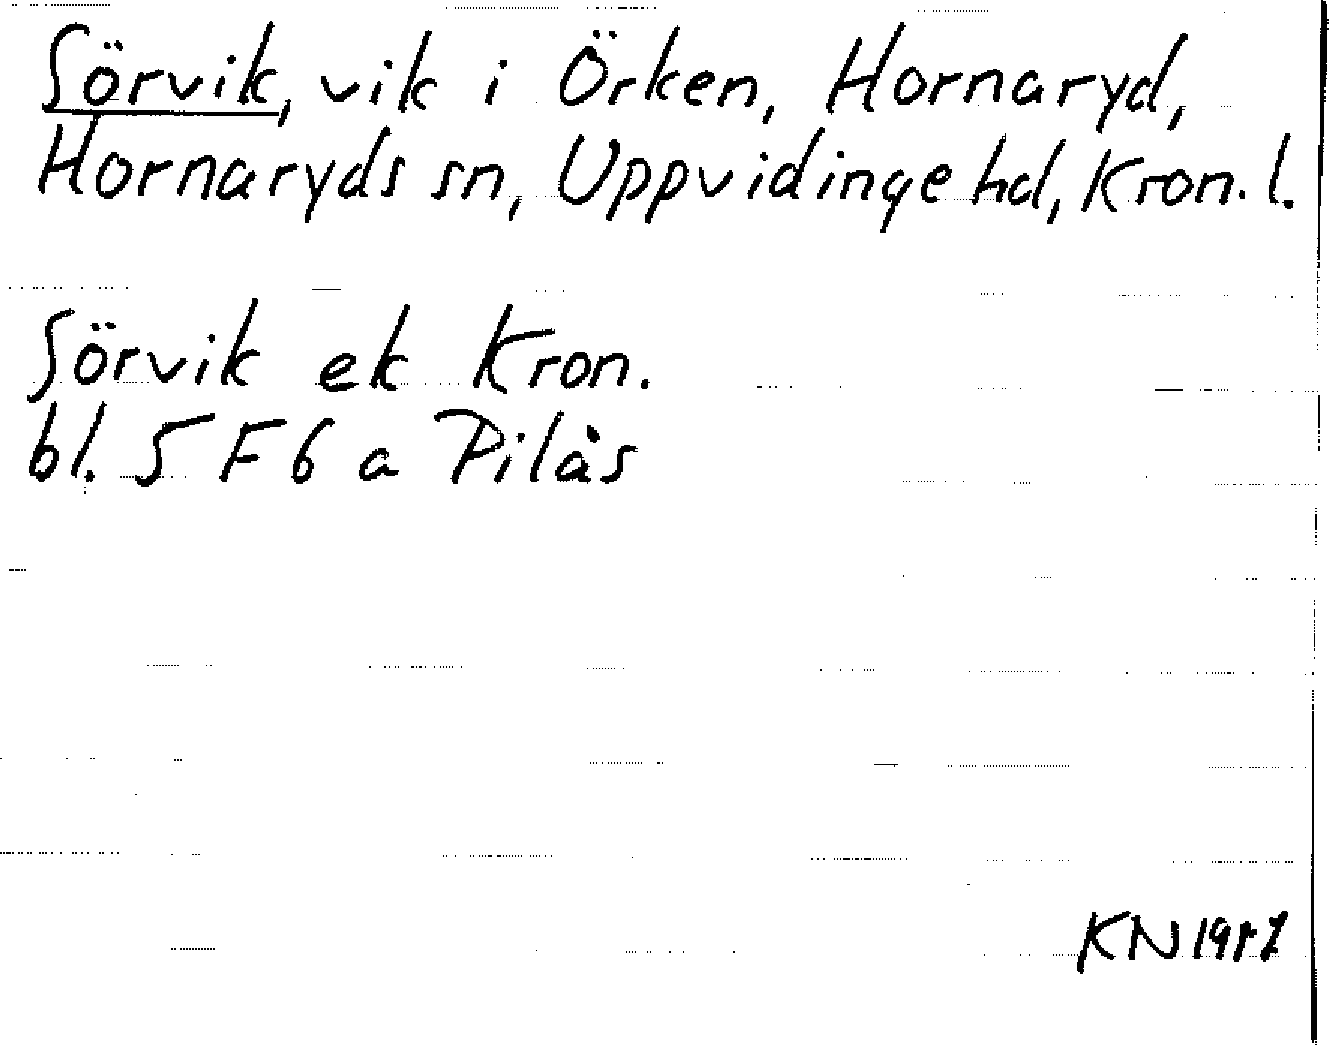 Sörvik, vik i Örken, Hornaryd,
Hornaryds sn, Uppvidinge hd, Kron. l.
Sörvik ek Kron.
bl. 5 F 6 a Pilås
KN 1987